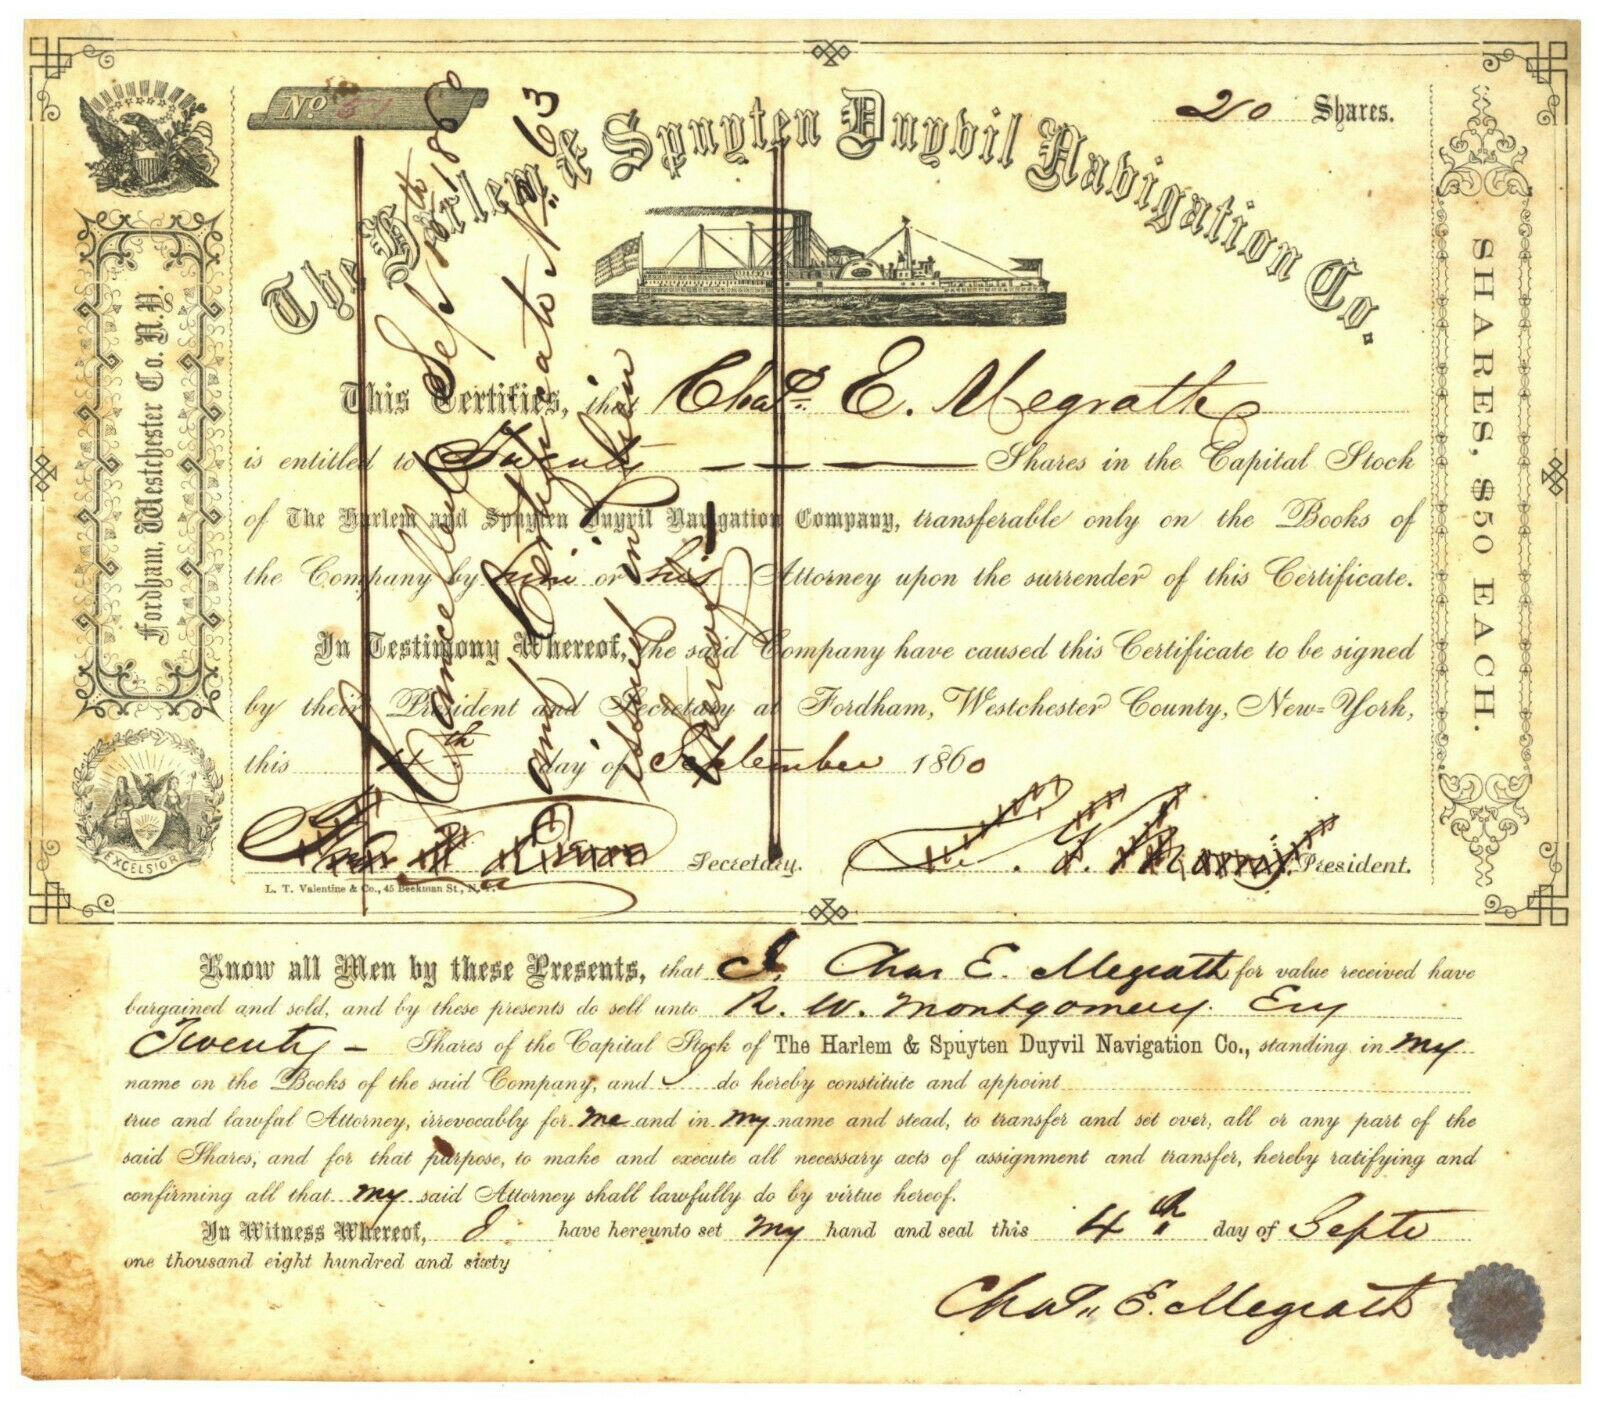 No 51
20 Shares.
The Harlem & Spuyten Duyvil Navigation Co.
Fordham, Westchester Co. N.Y.
SHARES, $50 EACH.
EXCELSIOR
This Certifies, that Chas. E. Megrath
is entitled to Twenty Shares in the Capital Stock
of The Harlem and Spuyten Duyvil Navigation Company, transferable only on the Books of
the Company by him or his Attorney upon the surrender of this Certificate.
In Testimony Whereof, the said Company have caused this Certificate to be signed
by their President and Secretary at Fordham, Westchester County, New-York,
this 4th day of September 1860
Secretary. President.
L. T. Valentine & Co., 45 Beekman St., N.Y.
Cancelled Sept 10th 1860
and Certificate No. 63
issued in
thereof
Know all Men by these Presents, that I Chas E. Megrath for value received have
bargained and sold, and by these presents do sell unto R. W. Montgomery
Twenty - Shares of the Capital Stock of The Harlem & Spuyten Duyvil Navigation Co., standing in my
name on the Books of the said Company, and I do hereby constitute and appoint
true and lawful Attorney, irrevocably for me and in my name and stead, to transfer and set over, all or any part of the
said Shares, and for that purpose, to make and execute all necessary acts of assignment and transfer, hereby ratifying and
confirming all that my said Attorney shall lawfully do by virtue hereof.
In Witness Whereof, I have hereunto set my hand and seal this 4th day of Septr
one thousand eight hundred and sixty
Chas. E. Megrath